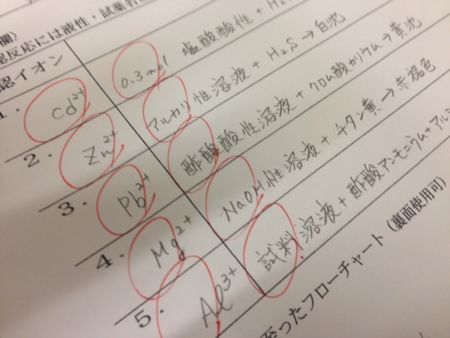 認反応には液性・試薬
認イオン
1. Cd²⁺ 0.3mol 塩酸酸性 + H₂
2. Zn²⁺ アルカリ性溶液 + H₂S → 白沈
3. Pb²⁺ 酢酸酸性溶液 + クロム酸カリウム → 黄沈
4. Mg²⁺ NaOH性溶液 + チタン黄 → 赤褐色
5. Al³⁺ 試料溶液 + 酢酸アンモニウム + アルミ
至ったフローチャート（裏面使用可）